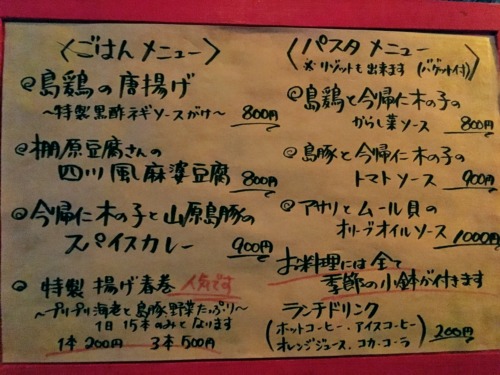 〈ごはんメニュー〉
◎島鶏の唐揚げ
～特製黒酢ネギソースがけ～ 800円
◎棚原豆腐さんの
四川風麻婆豆腐 800円
◎今帰仁木の子と山原島豚の
スパイスカレー 900円
◎特製 揚げ春巻 人気です
～プリプリ海老と島豚、野菜たっぷり～
1日15本のみとなります
1本200円 3本500円
〈パスタメニュー〉
※リゾットも出来ます (バゲット付)
◎島鶏と今帰仁木の子の
からし菜ソース 800円
◎島豚と今帰仁木の子の
トマトソース 900円
◎アサリとムール貝の
オリーブオイルソース 1000円
お料理には全て
季節の小鉢が付きます
ランチドリンク
(ホットコーヒー・アイスコーヒー
オレンジジュース、コカ・コーラ) 200円